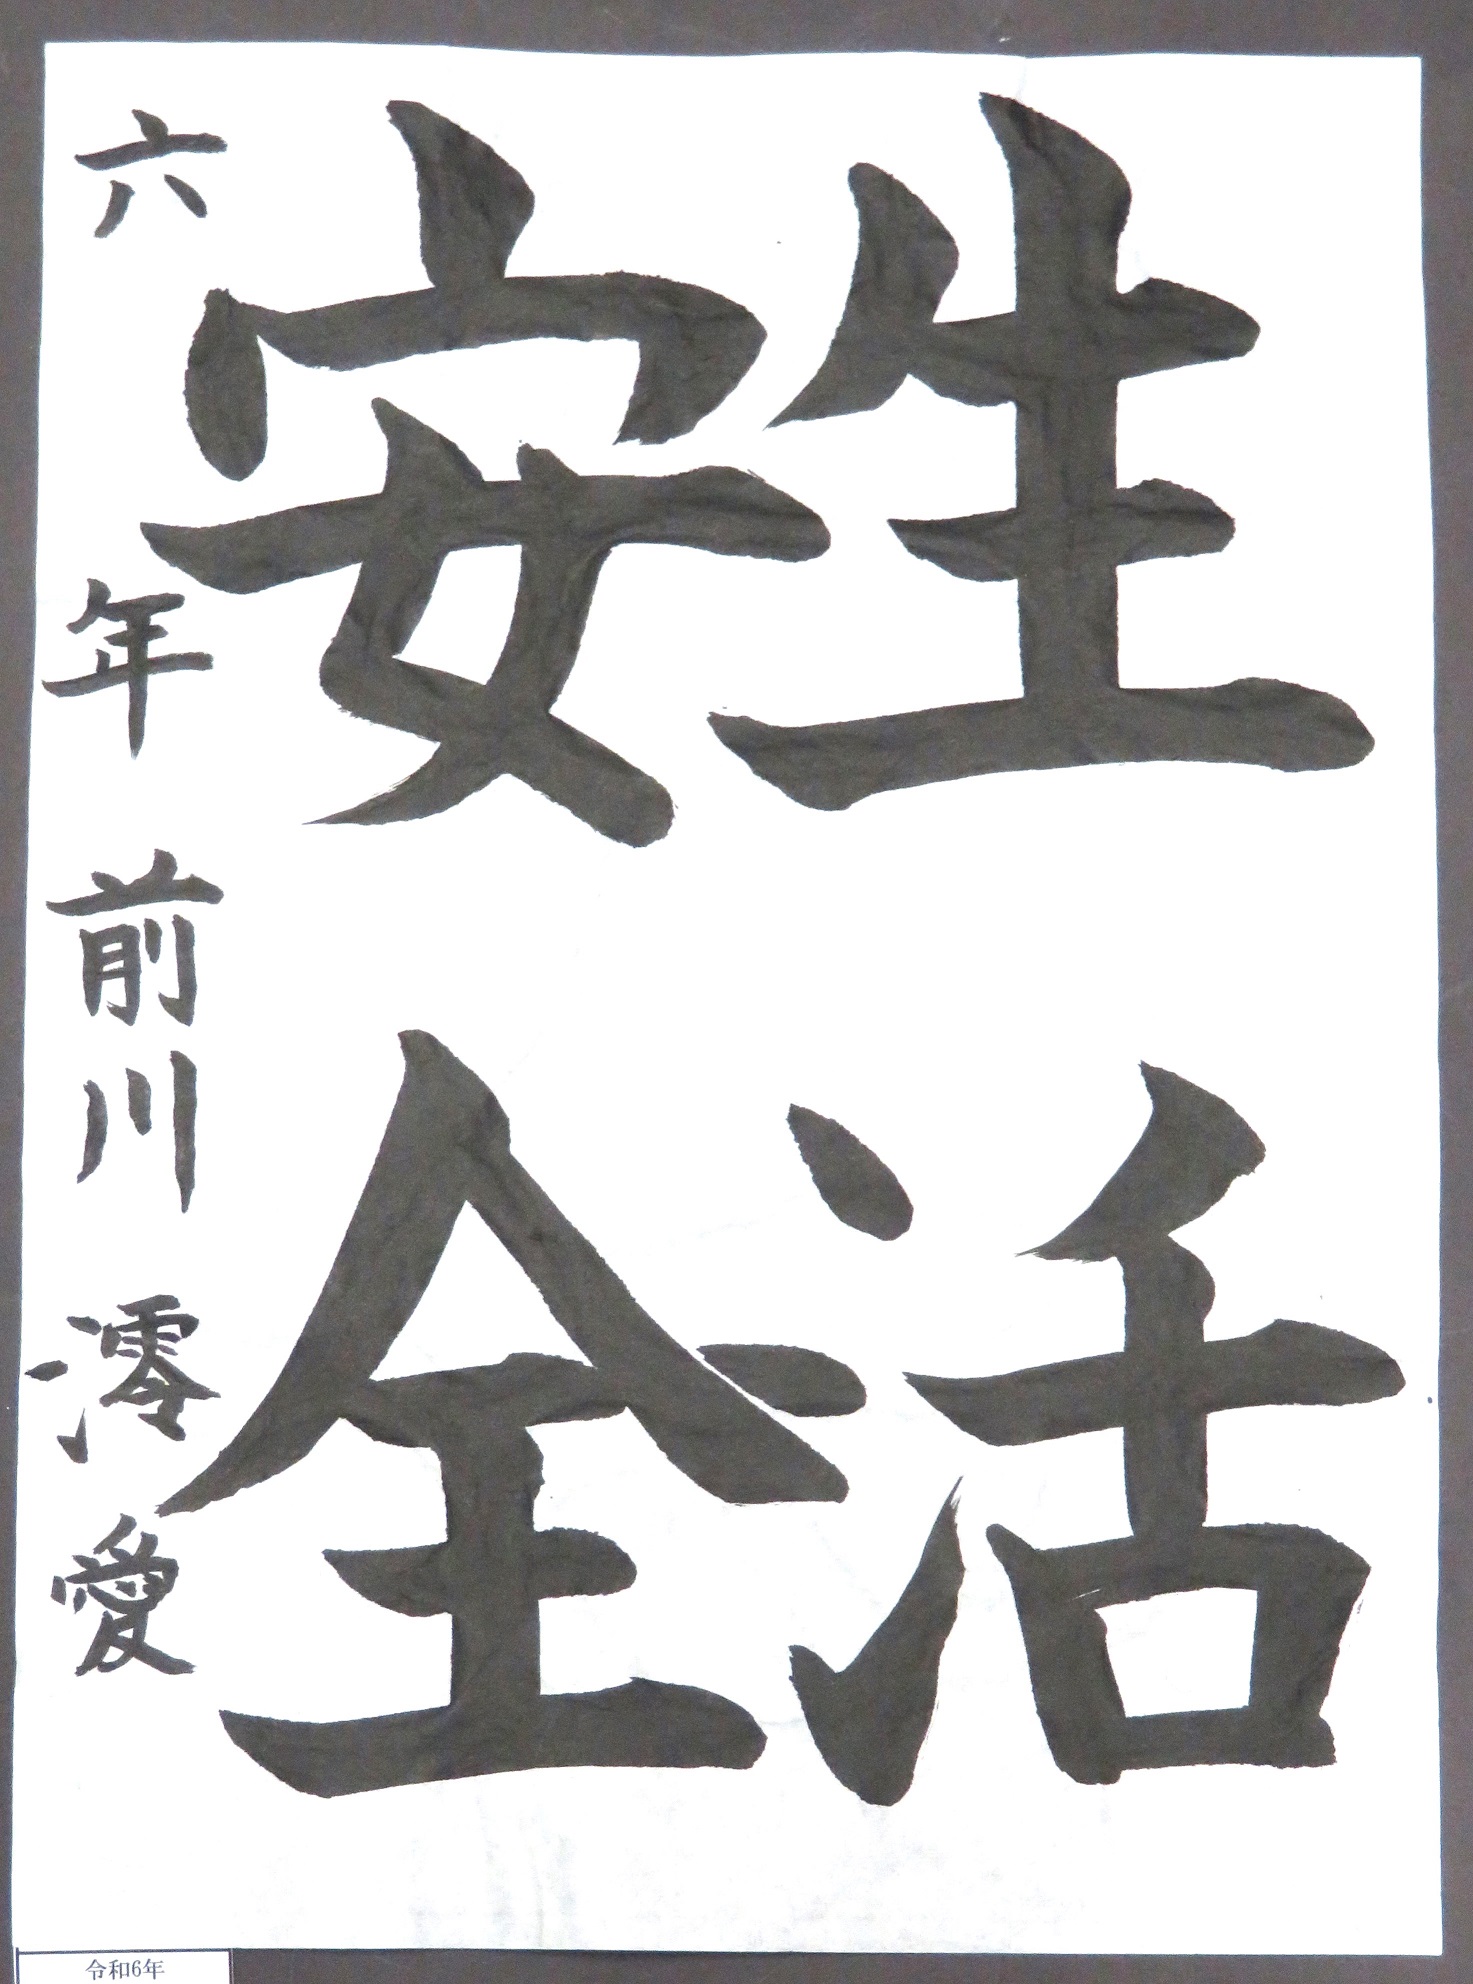 生活
安全
六年 前川 澪愛
令和6年